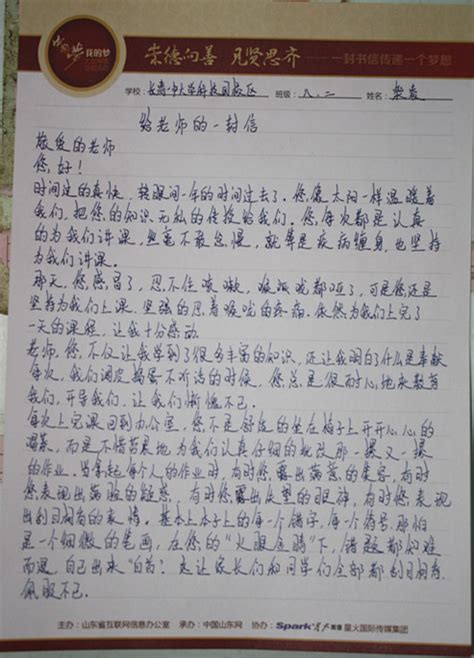 中国梦 我的梦
崇德向善 见贤思齐 一封书信传递一个梦想
学校：长清中大学科技园校区 班级：八.二 姓名：
给老师的一封信
敬爱的老师
您，好！
时间过的真快，转眼间一年的时间过去了。您像太阳一样温暖着
我们，把您的知识无私的传授给我们。您，每次都是认真
的为我们讲课，丝毫不敢怠慢，就算是疾病缠身，也坚持
为我们讲课。
那天，您感冒了，忍不住咳嗽，喉咙都哑了，可是您还是
坚持为我们上课，坚强的忍着喉咙的疼痛。依然为我们上完了
一天的课程，让我十分感动。
老师，您，不仅让我学到了很多丰富的知识，还让我明白了什么是奉献
每次，我们调皮捣蛋不听话的时候，您总是很耐心地来教育
我们，开导我们，让我们惭愧不已。
每次上完课回到办公室，您不是舒服的坐在椅子上开开心心的
，而是不惜劳累地为我们认真仔细的批改那一摞又一摞
的作业，当拿起每个人的作业时，有时您露出满意的笑容，有时
您表现出满脸的疑惑，有时您露出失望的眼神，有时您，表现
出刮目相看的表情。基本上本子上的每一个错字，每一个符号，那怕
是一个细微的笔画，在您的“火眼金睛”下，错题都知难
而退，自己出来“自首”。这让家长们和同学们全部都刮目相看，
佩服不已。
主办：山东省互联网信息办公室 承办：中国山东网 协办：Spark 星火国际传媒集团